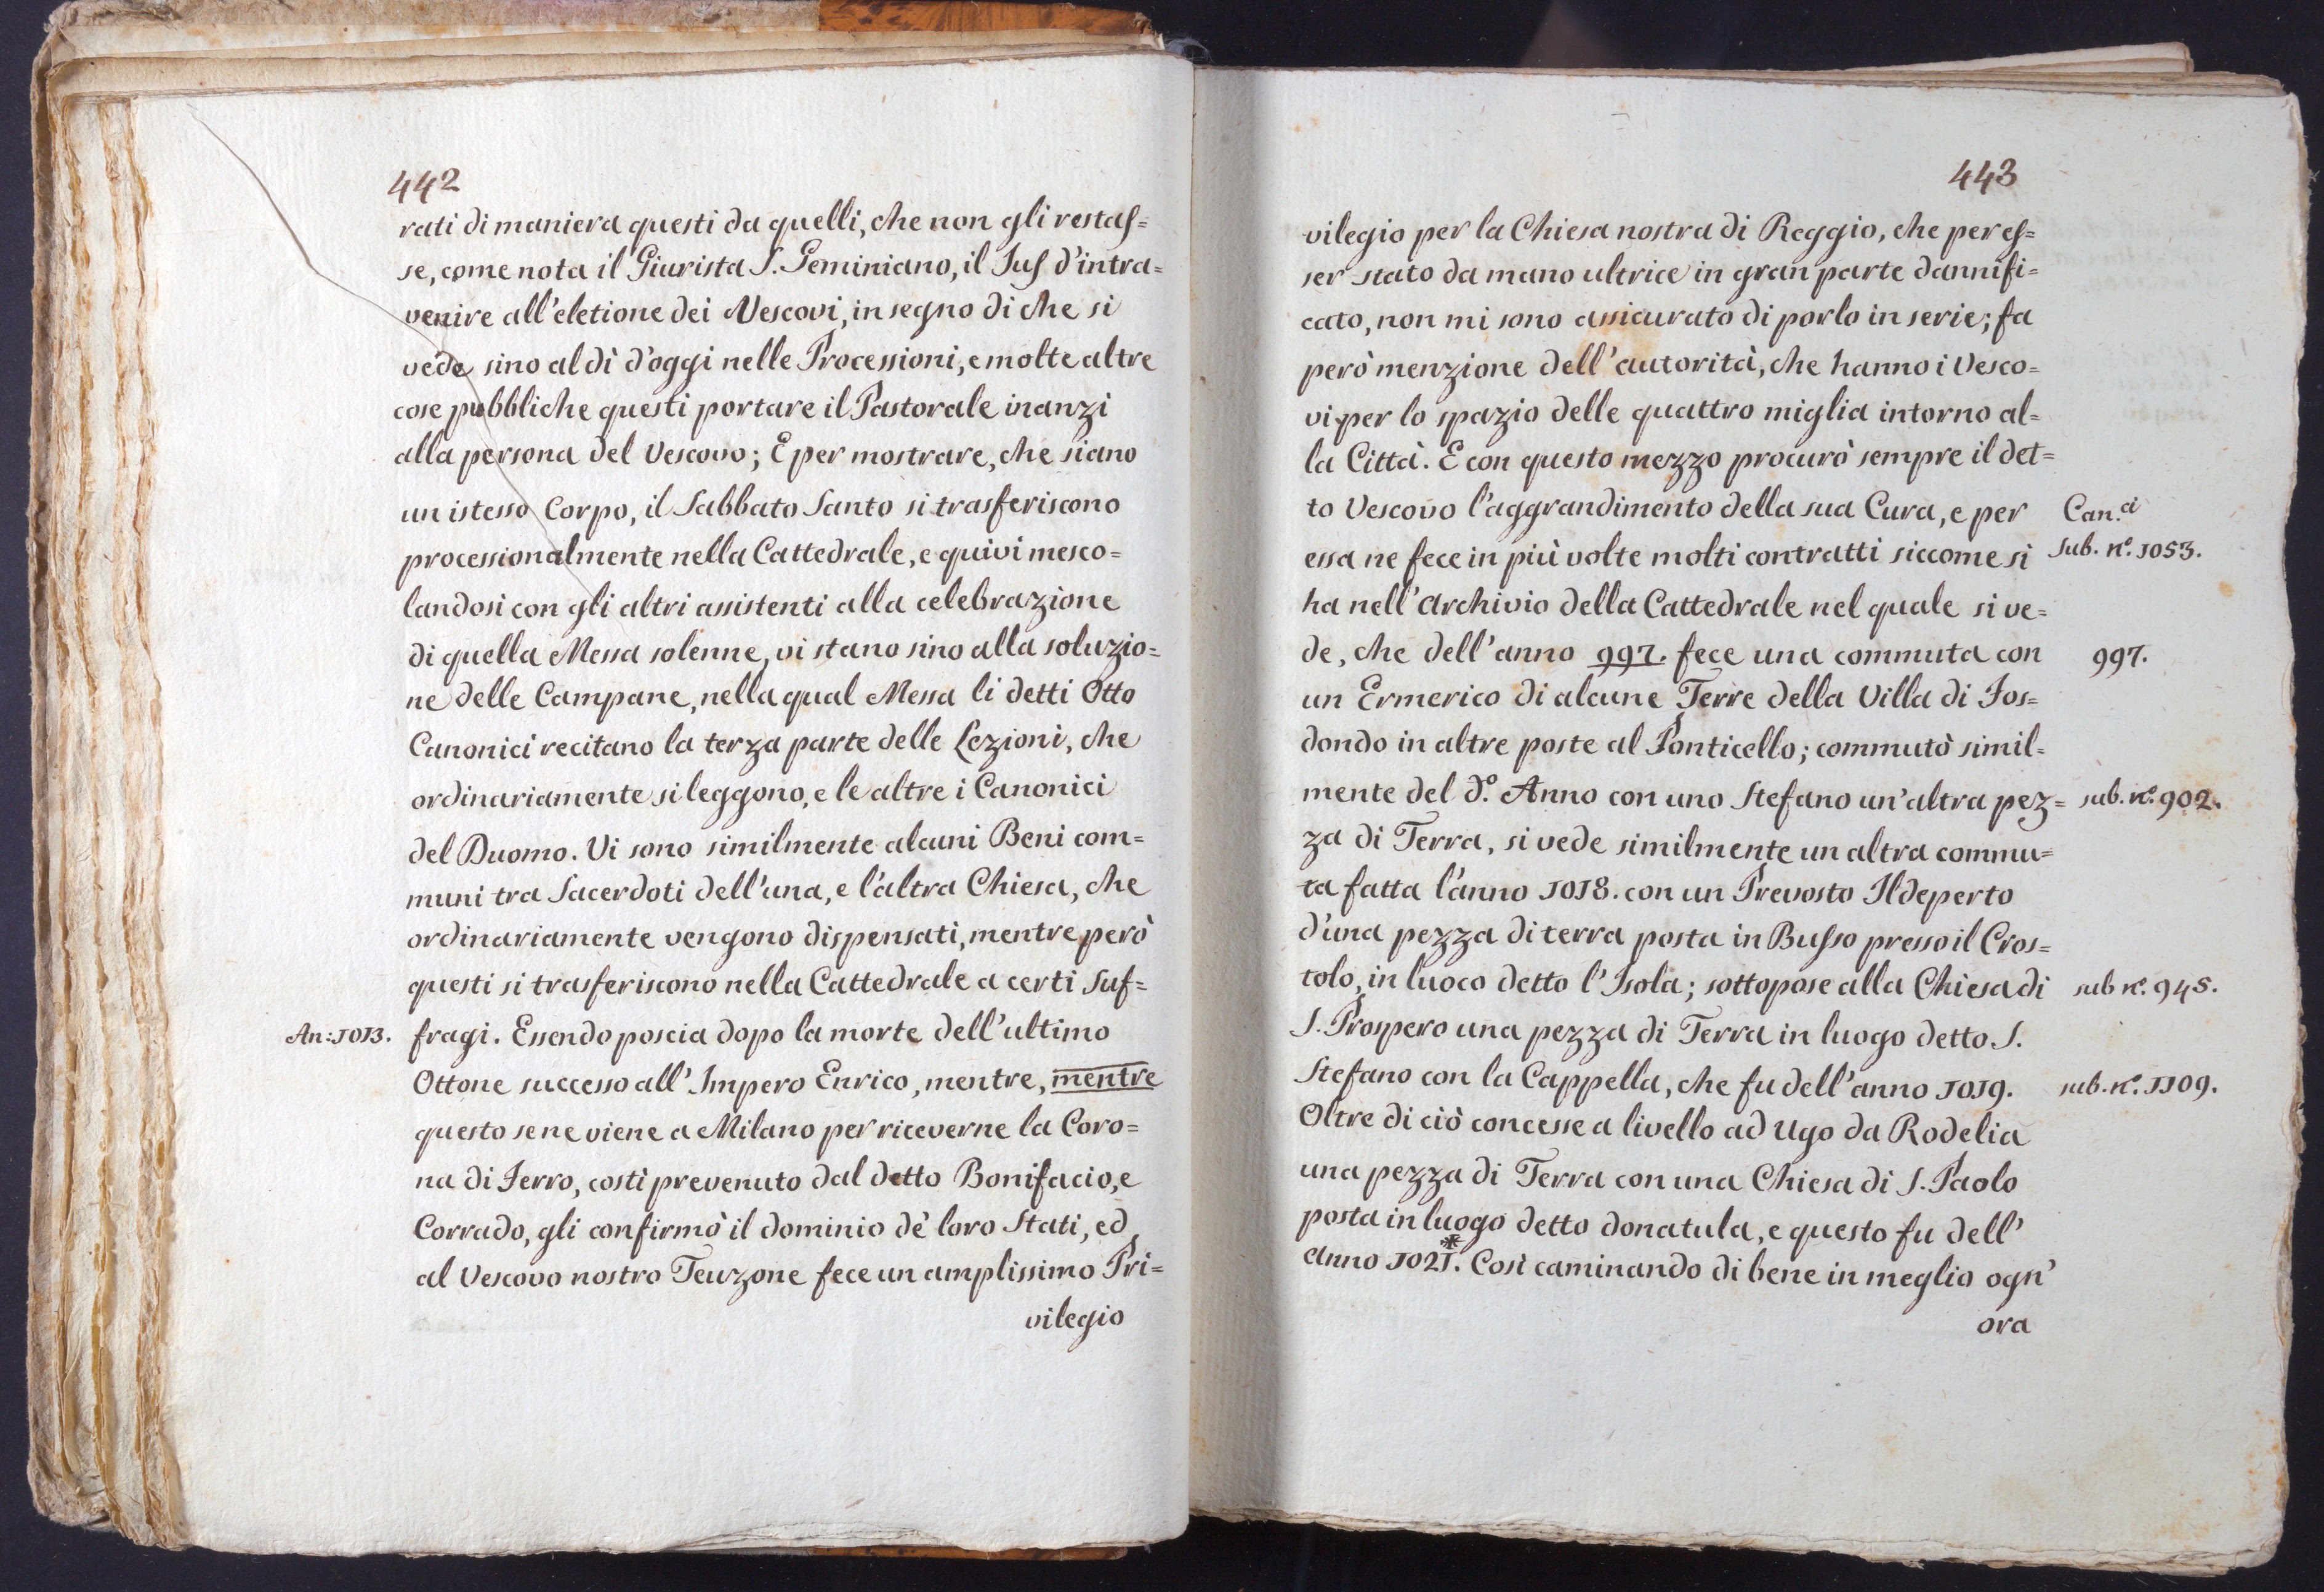 442
rati di maniera questi da quelli, che non gli restas=
se, come nota il Giurista S. Geminiano, il Jus d'intra=
venire all'eletione dei Vescovi, in segno di che si
vede sino al dì d'oggi nelle Processioni, e molte altre
cose pubbliche questi portare il Pastorale inanzi
alla persona del Vescovo; E per mostrare, che siano
un istesso Corpo, il Sabbato Santo si trasferiscono
processionalmente nella Cattedrale, e quivi mesco=
landosi con gli altri assistenti alla celebrazione
di quella Messa solenne, vi stano sino alla soluzio=
ne delle Campane, nella qual Messa li detti Otto
Canonici recitano la terza parte delle Lezioni, che
ordinariamente si leggono, e le altre i Canonici
del Duomo. Vi sono similmente alcuni Beni com=
muni tra Sacerdoti dell'una, e l'altra Chiesa, che
ordinariamente vengono dispensati, mentre però
questi si trasferiscono nella Cattedrale a certi Suf=
An: 1013. fragi. Essendo poscia dopo la morte dell'ultimo
Ottone successo all'Impero Enrico, mentre, mentre
questo se ne viene a Milano per riceverne la Coro=
na di Ferro, costì prevenuto dal detto Bonifacio, e
Corrado, gli confirmò il dominio dè loro Stati, ed
al Vescovo nostro Teuzone fece un amplissimo Pri=
vilegio
443
vilegio per la Chiesa nostra di Reggio, che per es=
ser stato da mano ultrice in gran parte dannifi=
cato, non mi sono assicurato di porlo in serie; fa
però menzione dell'autorità, che hanno i Vesco=
vi per lo spazio delle quattro miglia intorno al=
la Città. E con questo mezzo procurò sempre il det=
to Vescovo l'aggrandimento della sua Cura, e per Can.ci
essa ne fece in più volte molti contratti siccome si sub. n.º 1053.
ha nell'Archivio della Cattedrale nel quale si ve=
de, che dell'anno 997. fece una commuta con 997.
un Ermerico di alcune Terre della Villa di Fos=
dondo in altre poste al Ponticello; commutò simil=
mente del d.º Anno con uno Stefano un'altra pez= sub. n.º 902.
za di Terra, si vede similmente un altra commu=
ta fatta l'anno 1018. con un Prevosto Ildeperto
d'una pezza di terra posta in Busso presso il Cros=
tolo, in luoco detto l'Isola; sottopose alla Chiesa di sub n.º 945.
S. Prospero una pezza di Terra in luogo detto S.
Stefano con la Cappella, che fu dell'anno 1019. sub. n.º 1109.
Oltre di ciò concesse a livello ad Ugo da Rodelia
una pezza di Terra con una Chiesa di S. Paolo
posta in luogo detto donatula, e questo fu dell'
anno 1021.* Così caminando di bene in meglio ogn'
ora